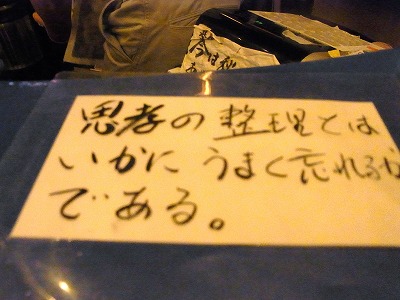 今は
思考の整理とは
いかにうまく忘れるか
である。